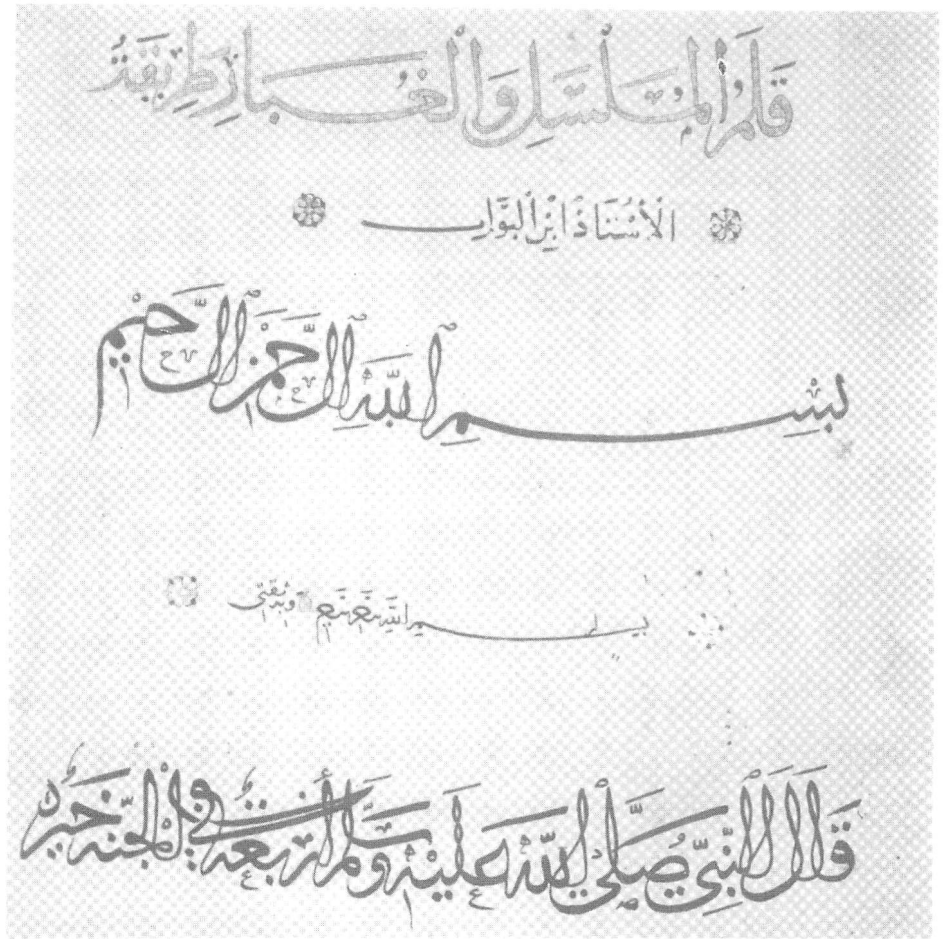 قَلَمُ الْمُسَلْسَلِ وَالْغُبَارِ طَرِيقَةُ
الْأُسْتَاذِ ابْنِ الْبَوَّاب
بِسْمِ اللَّهِ الرَّحْمَنِ الرَّحِيمِ
بسم الله
قَالَ النَّبِيُّ صَلَّى اللَّهُ عَلَيْهِ وَسَلَّمَ أَرْبَعَةٌ فِي الْجَنَّة خَيْرٌ